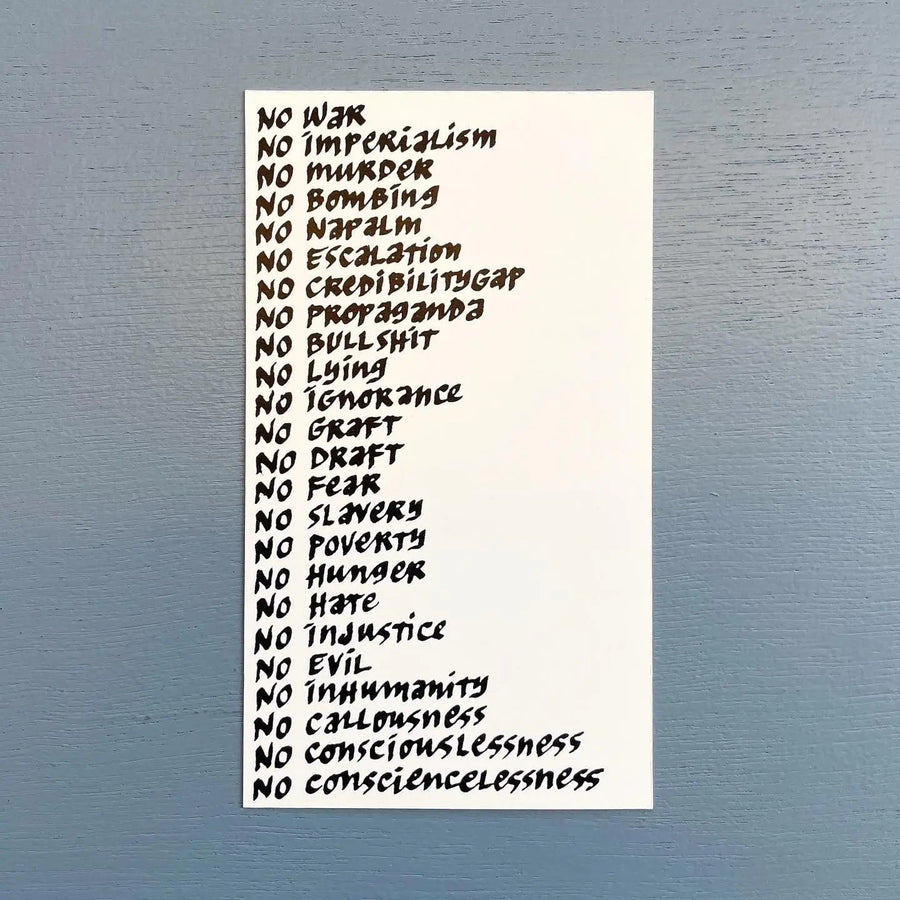 NO WAR
NO IMPERIALISM
NO MURDER
NO BOMBING
NO NAPALM
NO ESCALATION
NO CREDIBILITYGAP
NO PROPAGANDA
NO BULLSHIT
NO LYING
NO IGNORANCE
NO GRAFT
NO DRAFT
NO FEAR
NO SLAVERY
NO POVERTY
NO HUNGER
NO HATE
NO INJUSTICE
NO EVIL
NO INHUMANITY
NO CALLOUSNESS
NO CONSCIOUSLESSNESS
NO CONSCIENCELESSNESS